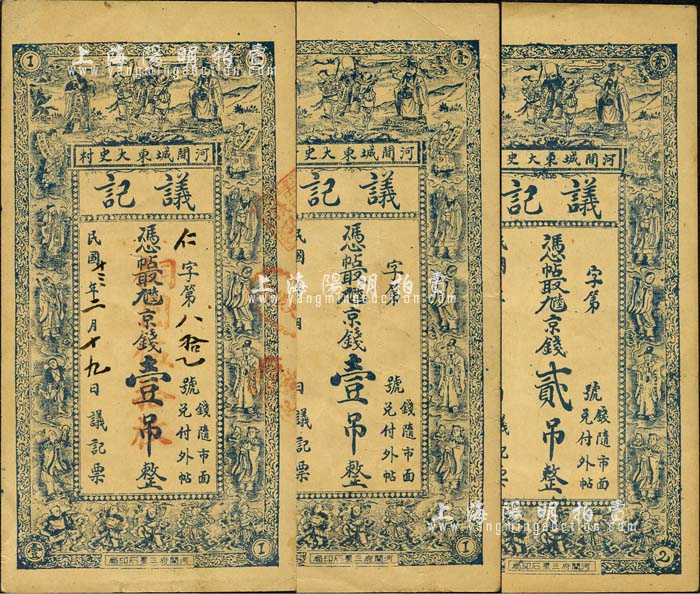 上海陽明拍賣
www.yangmingauction.com
1
壹
河間城東大史村
議記
仁字第八拾乙號
憑帖取
京錢壹吊整
錢隨市面
兌付外帖
民國十三年二月十九日議記票
壹
1
河間府三星石印局
壹
河間城東大史
議記
字第
號
憑帖取
京錢壹吊整
錢隨市面
兌付外帖
民國
月
日
議記票
1
河間府三星石印局
貳
河間城東大史
議記
字第
號
憑帖取
京錢貳吊整
錢隨市面
兌付外帖
2
河間府三星石印局
上海陽明拍賣
www.yangmingauction.com
上海陽明拍賣
www.yangmingauction.com